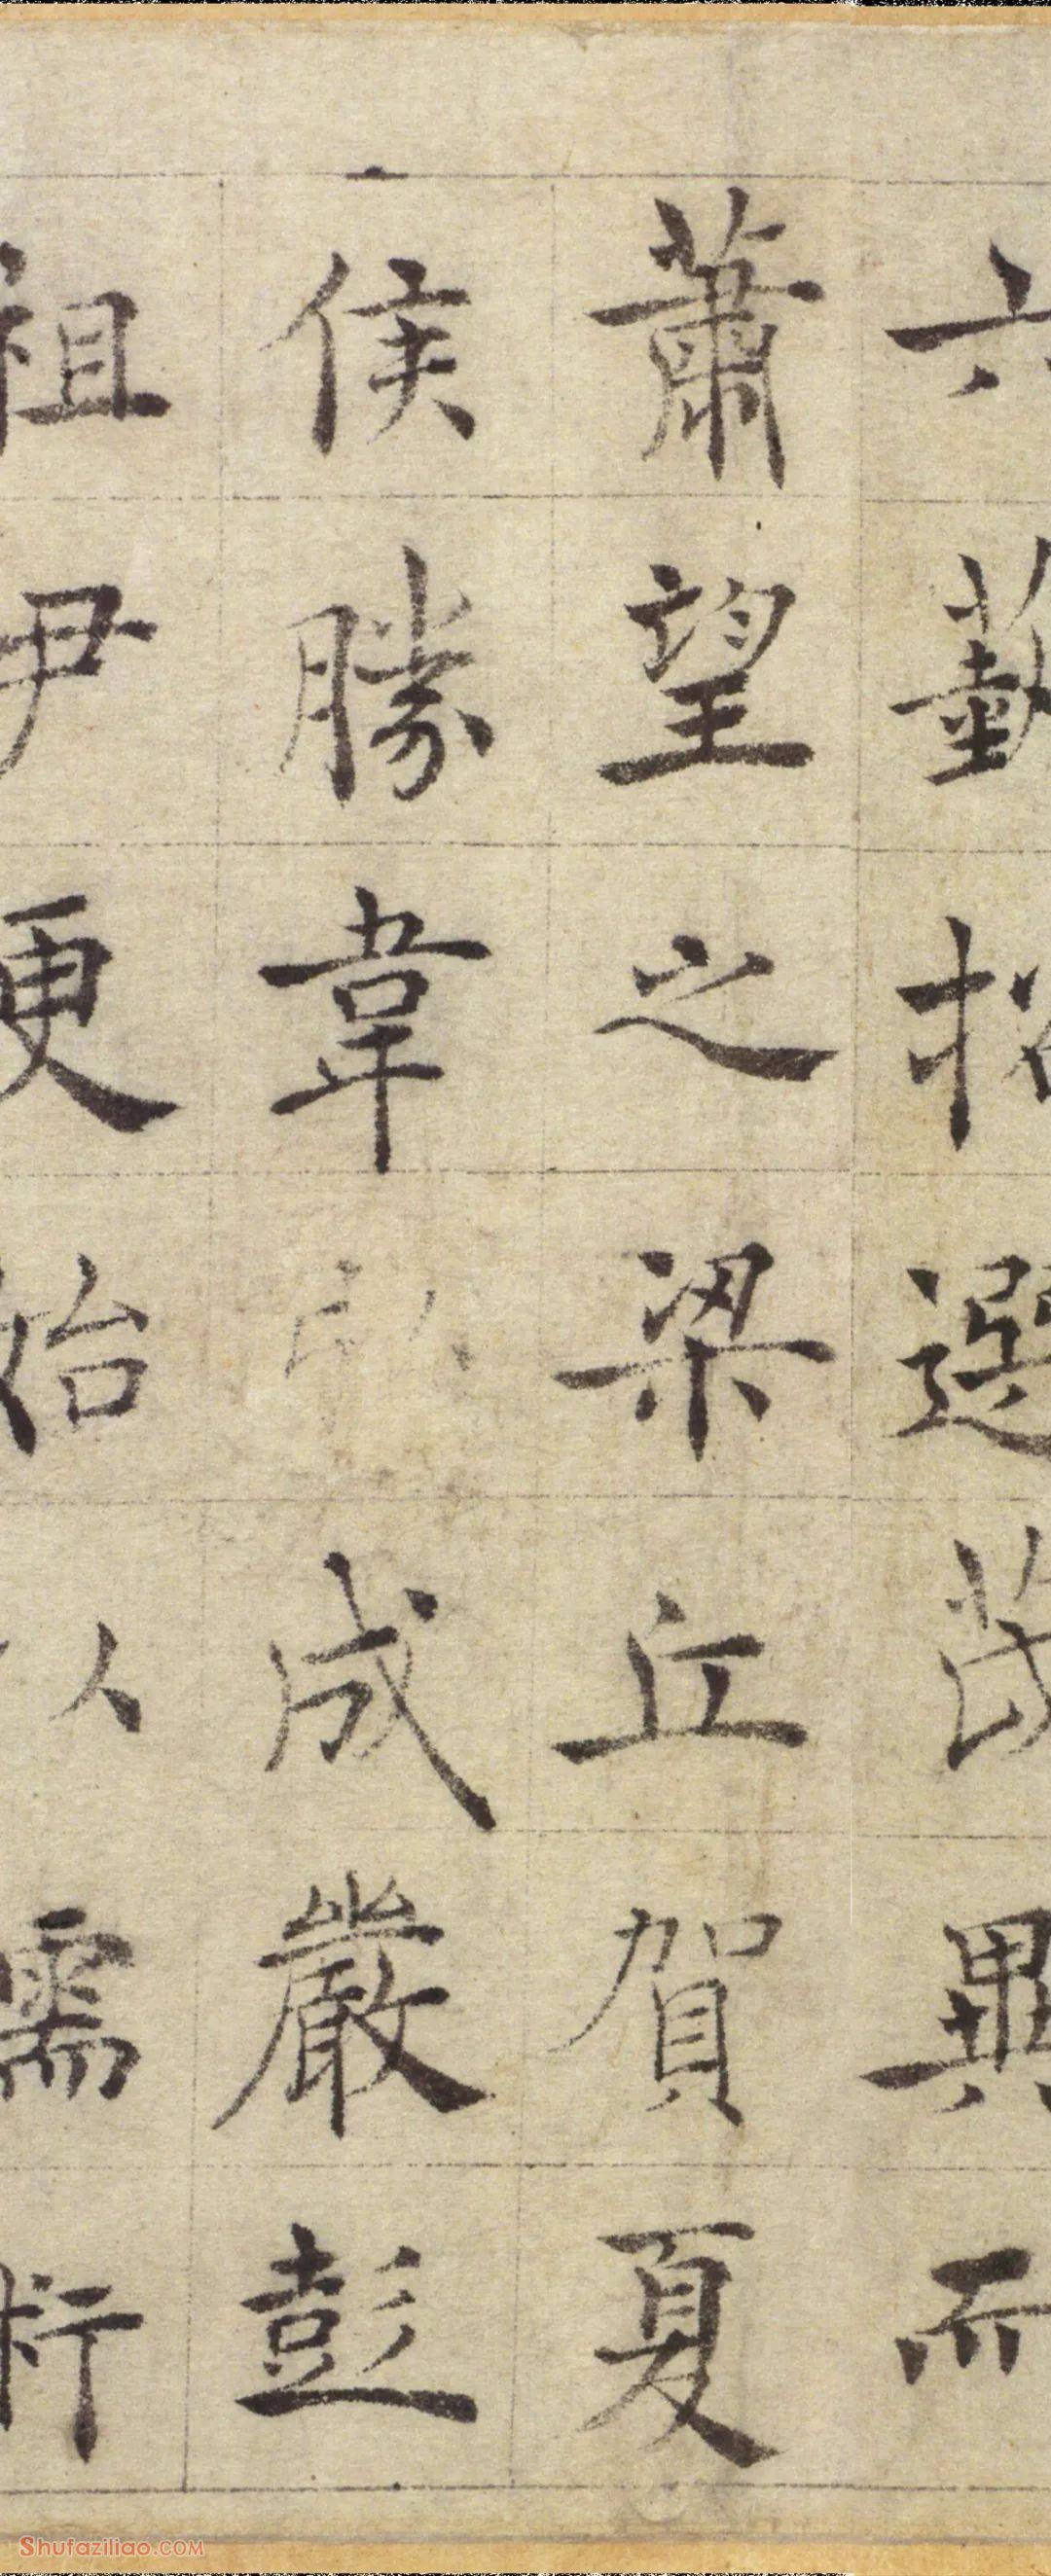 六蓺招選茂異而
蕭望之梁丘賀夏
侯勝韋成嚴彭
祖尹更始以儒術
Shufaziliao.COM